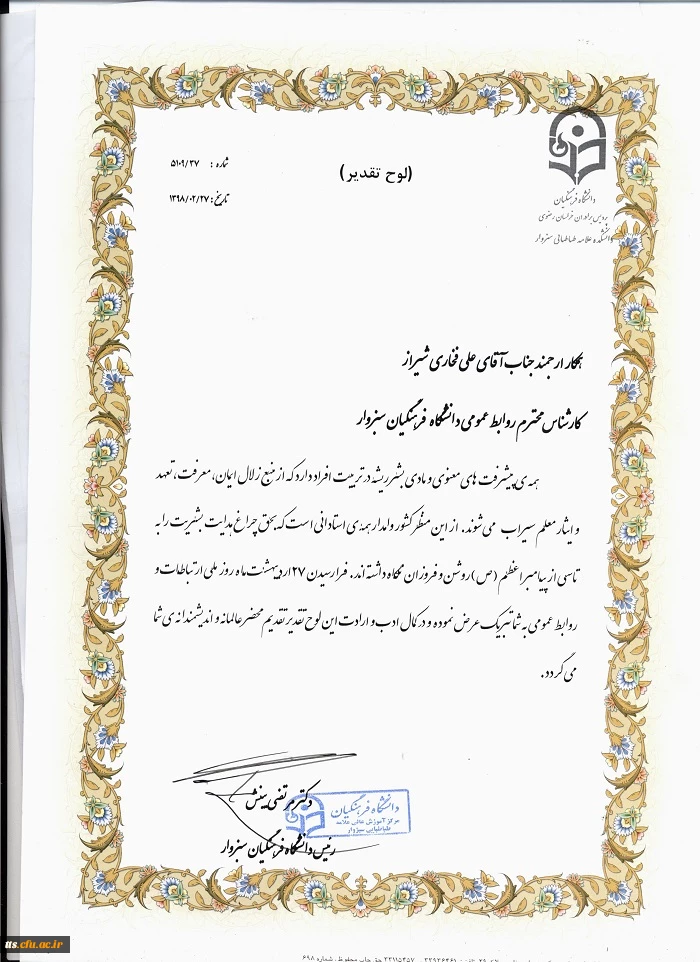 (لوح تقدیر)
شماره: ۵۱۰۹/۳۷
تاریخ: ۱۳۹۸/۰۲/۲۷
دانشگاه فرهنگیان
پردیس برادران خراسان رضوی
دانشکده علامه طباطبائی سبزوار
همکار ارجمند جناب آقای علی فخاری شیراز
کارشناس محترم روابط عمومی دانشگاه فرهنگیان سبزوار
همه ی پیشرفت های معنوی و مادی بشر ریشه در تربیت افراد دارد که از منبع زلال ایمان، معرفت، تعهد
و ایثار معلم سیراب می شوند. از این منظر کشور وامدار همه ی استادانی است که بحق چراغ هدایت بشریت را به
تاسی از پیامبر اعظم (ص) روشن و فروزان نگاه داشته اند. فرا رسیدن ۲۷ اردیبهشت ماه روز ملی ارتباطات و
روابط عمومی به شما تبریک عرض نموده و در کمال ادب و ارادت این لوح تقدیر تقدیم محضر عالمانه و اندیشمندانه ی شما
می گردد.
دکتر مرتضی بینش
رئیس دانشگاه فرهنگیان سبزوار
دانشگاه فرهنگیان
مرکز آموزش عالی علامه
طباطبایی سبزوار
tts.cfu.ac.ir